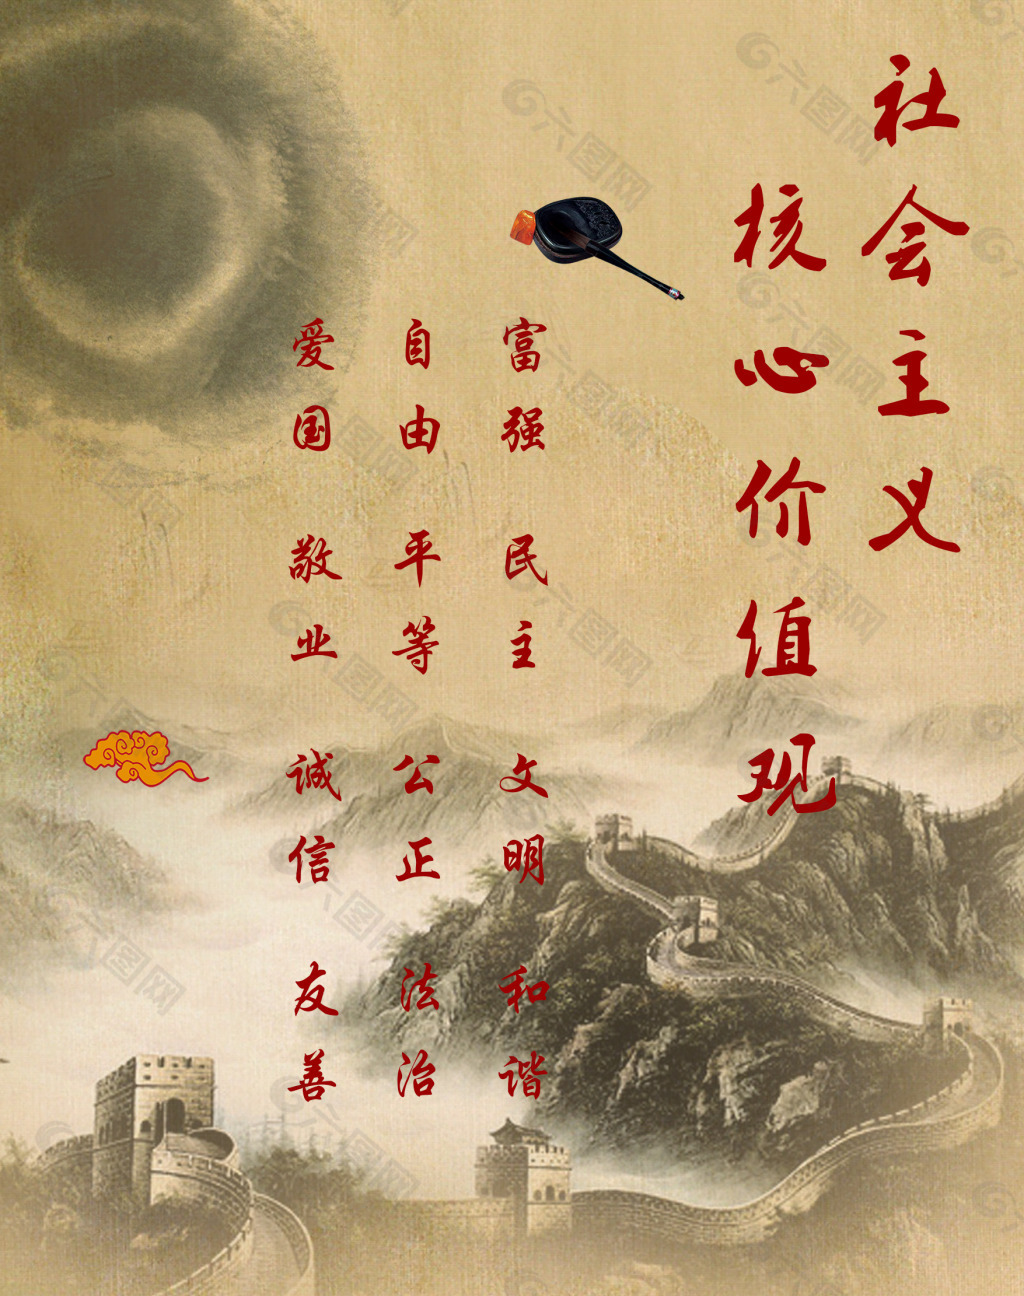 社会主义
核心价值观
富强 民主 文明 和谐
自由 平等 公正 法治
爱国 敬业 诚信 友善
六图网